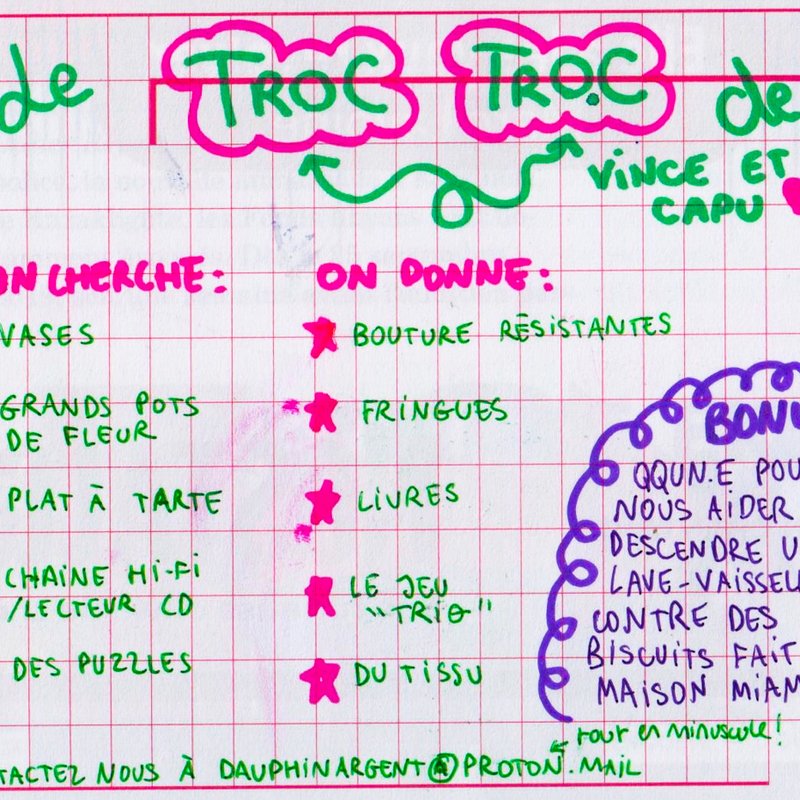 de TROC TROC de
VINCE ET
CAPU
ON CHERCHE:
VASES
GRANDS POTS
DE FLEUR
PLAT À TARTE
CHAINE HI-FI
/LECTEUR CD
DES PUZZLES
ON DONNE:
BOUTURE RÉSISTANTES
FRINGUES
LIVRES
LE JEU
"TRIO"
DU TISSU
BONU
QQUN.E POU
NOUS AIDER
DESCENDRE U
LAVE-VAISSEL
CONTRE DES
BISCUITS FAIT
MAISON MIAM
tout en minuscule!
TACTEZ NOUS À DAUPHINARGENT@PROTON.MAIL